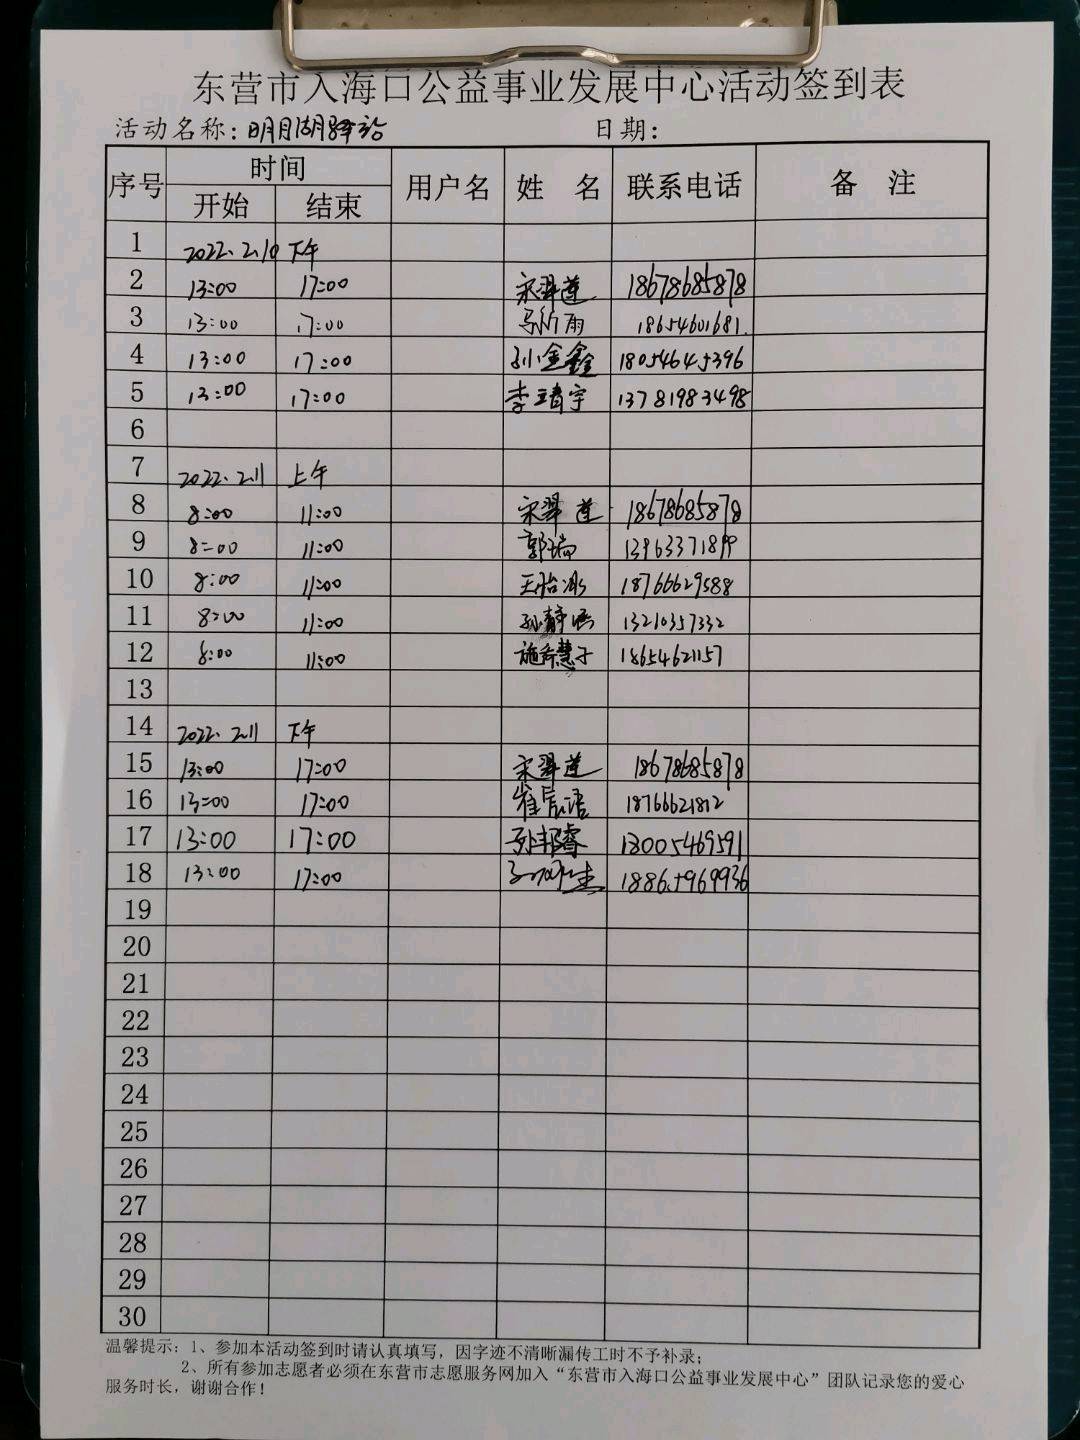 东营市入海口公益事业发展中心活动签到表
活动名称：明月湖驿站 日期：
序号 时间 用户名 姓 名 联系电话 备 注
开始 结束
1 2022.2.10 下午
2 13:00 17:00 宋翠莲 18678685878
3 13:00 17:00 雨 18654601681
4 13:00 17:00 孙金鑫 18054645396
5 13:00 17:00 李靖宇 13781983498
6
7 2022.2.11 上午
8 8:00 11:00 宋翠莲 18678685878
9 8:00 11:00 郭瑞 13963371899
10 8:00 11:00 王怡冰 18766629588
11 8:00 11:00 孙静 13210357332
12 8:00 11:00 施 慧子 18654621157
13
14 2022.2.11 下午
15 13:00 17:00 宋翠莲 18678685878
16 13:00 17:00 崔辰语 18766621812
17 13:00 17:00 孙邦睿 13005469591
18 13:00 17:00 18865969936
19
20
21
22
23
24
25
26
27
28
29
30
温馨提示：1、参加本活动签到时请认真填写，因字迹不清晰漏传工时不予补录；
2、所有参加志愿者必须在东营市志愿服务网加入“东营市入海口公益事业发展中心”团队记录您的爱心
服务时长，谢谢合作！